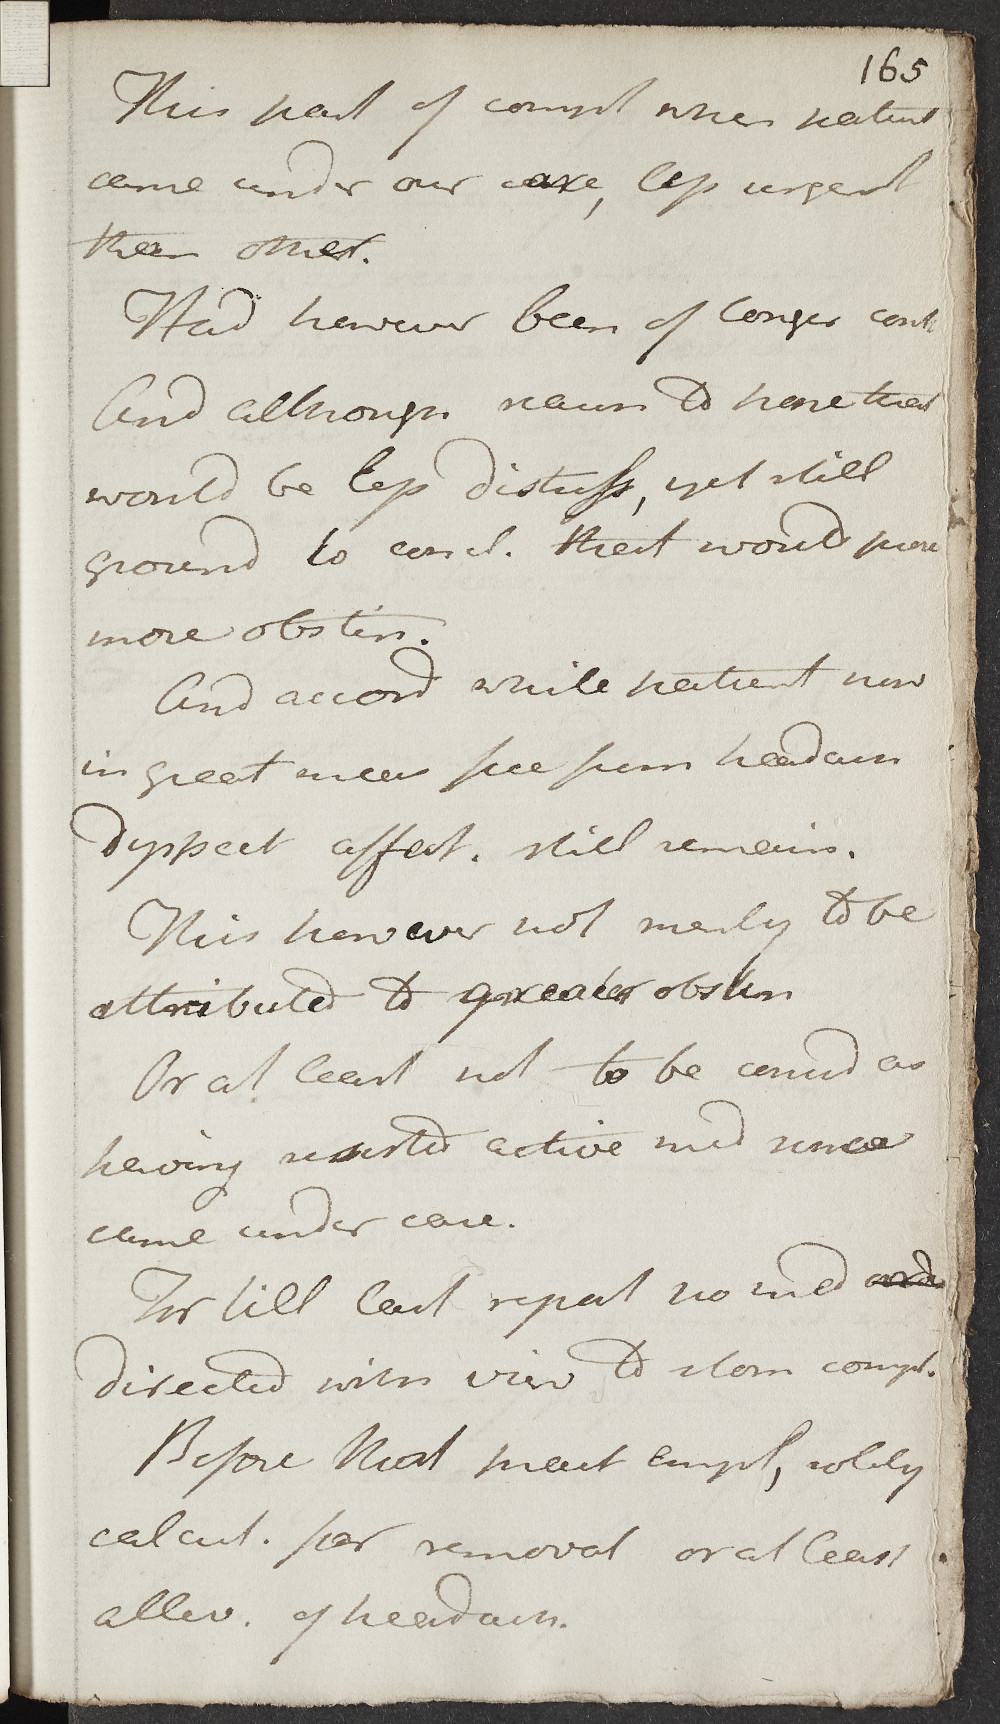 165
This part of compl when patient
came under our care, less urgent
than other.
Had however been of longer cont
And although reason to hope that
would be less distress, yet still
ground to concl. that would prove
more obstin.
And accord while patient now
in great meas free from headach
Dyspept affect. still remain.
This however not merely to be
attributed to greater obstin
Or at least not to be consid as
having resisted active med since
came under care.
For till last report no med
directed with view to stom compl.
Before that pract empl, solely
calcul. for removal or at least
allev. of headach.